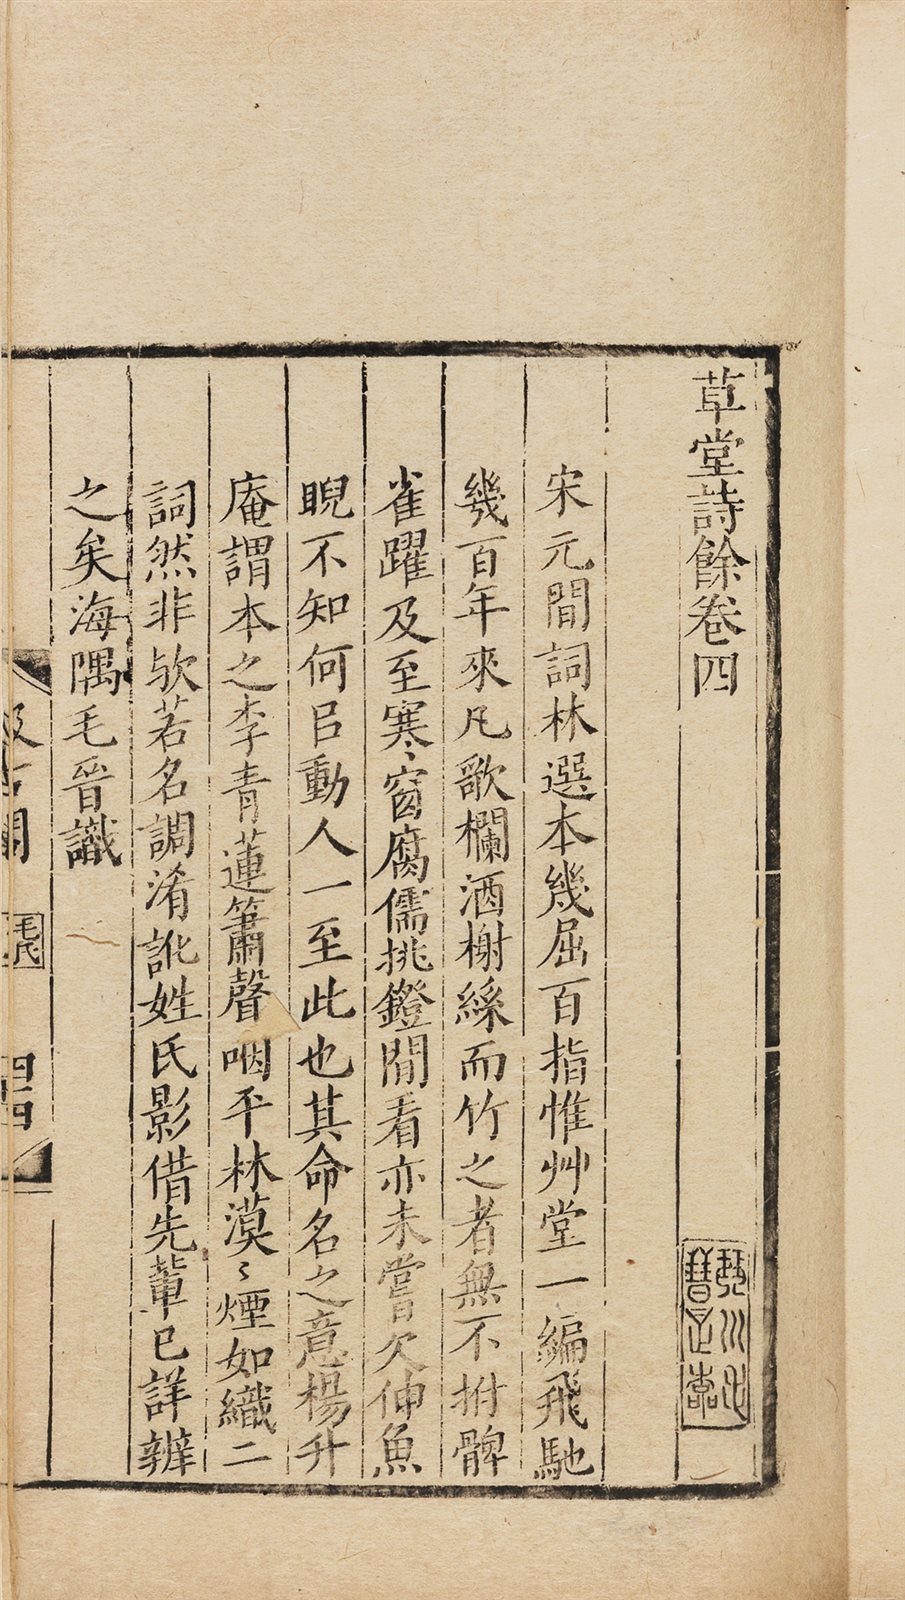 草堂詩餘卷四
宋元間詞林選本幾屈百指惟艸堂一編飛馳
幾百年來凡歌欄酒榭絲而竹之者無不拊髀
雀躍及至寒窗腐儒挑鐙閒看亦未嘗欠伸魚
睨不知何㠯動人一至此也其命名之意楊升
庵謂本之李青蓮簫聲咽平林漠〻煙如織二
詞然非歟若名調淆訛姓氏影借先輩已詳辨
之矣海隅毛晉識
汲古閣
毛氏